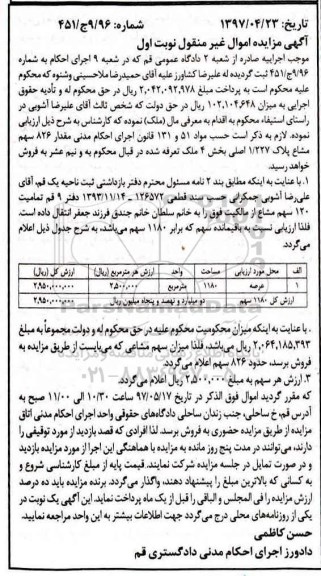 تاریخ: ۱۳۹۷/۰۴/۲۳ شماره: ۹/۹۶ج/۴۵۱
آگهی مزایده اموال غیر منقول نوبت اول
موجب اجراییه صادره از شعبه ۲ دادگاه عمومی قم که در شعبه ۹ اجرای احکام به شماره
۹/۹۶ج/۴۵۱ ثبت گردیده له علیرضا کشاورز علیه آقای حمیدرضا ملاحسینی وشنوه که محکوم
علیه محکوم است به پرداخت مبلغ ۲,۰۴۲,۰۹۲,۹۷۸ ریال در حق محکوم له و تأدیه حقوق
اجرایی به میزان ۱۰۲,۱۰۴,۶۴۸ ریال در حق دولت که شخص ثالث آقای علیرضا آشویی در
راستای استیفاء محکوم به اقدام به معرفی مال (ملک) نموده که کارشناس به شرح ذیل ارزیابی
نموده. لازم به ذکر است حسب مواد ۵۱ و ۱۳۱ قانون اجرای احکام مدنی مقدار ۸۲۶ سهم
مشاع پلاک ۱/۲۲۷ اصلی بخش ۴ ملک تعرفه شده در قبال محکوم به و نیم عشر به فروش
خواهد رسید.
۱. با عنایت به اینکه مطابق بند ۲ نامه مسئول محترم دفتر بازداشتی ثبت ناحیه یک قم، آقای
علی‌رضا آشویی جمکرانی حسب سند قطعی ۱۲۶۵۷۲ - ۱۳۹۳/۱۱/۱۴ دفتر ۹ قم تمامیت
۱۲۰ سهم مشاع از مالکیت فوق را به خانم سلطان خانم جندق فرزند جعفر انتقال داده است.
فلذا ارزیابی نسبت به باقیمانده سهم که برابر ۱۱۸۰ سهم می‌باشد، به شرح جدول ذیل اعلام
می‌گردد.
الف محل مورد ارزیابی مساحت واحد ارزش هر مترمربع (ریال) ارزش کل (ریال)
۱ عرصه ۱۱۸۰ مترمربع ۲,۵۰۰,۰۰۰ ۲,۹۵۰,۰۰۰,۰۰۰
ارزش کل ۱۱۸۰ سهم دو میلیارد و نهصد و پنجاه میلیون ریال ۲,۹۵۰,۰۰۰,۰۰۰
. با عنایت به اینکه میزان محکومیت محکوم علیه در حق محکوم له و دولت مجموعاً به مبلغ
۲,۰۶۴,۱۸۵,۳۹۳ ریال می‌باشد، فلذا میزان سهم مشاعی که می‌بایست از طریق مزایده به
فروش برسد، حدود ۸۲۶ سهم اعلام می‌گردد.
۳. ارزش هر سهم به مبلغ ۲,۵۰۰,۰۰۰ ریال اعلام می‌گردد.
که مقرر گردید اموال فوق الذکر در تاریخ ۹۷/۰۵/۱۷ ساعت ۱۰/۳۰ الی ۱۱/۰۰ صبح به
آدرس قم، خ ساحلی، جنب زندان ساحلی دادگاه‌های حقوقی واحد اجرای احکام مدنی اتاق
مزایده از طریق مزایده حضوری به فروش برسد. لذا افرادی که قصد بازدید از مورد توقیفی را
دارند، می‌توانند در مدت پنج روز مانده به مزایده با هماهنگی این اجرا از مورد مزایده بازدید
و در صورت تمایل در جلسه مزایده شرکت نمایند. قیمت پایه از مبلغ کارشناسی شروع و
به کسانی که بالاترین مبلغ را پیشنهاد دهند، واگذار می‌گردد. برنده مزایده باید ده درصد
ارزش مزایده را فی المجلس و الباقی را قبل از یک ماه پرداخت نماید. این آگهی یک نوبت در
یکی از روزنامه‌های محلی درج می‌گردد جهت اطلاعات بیشتر به این واحد مراجعه نمایید.
حسن کاظمی
دادورز اجرای احکام مدنی دادگستری قم